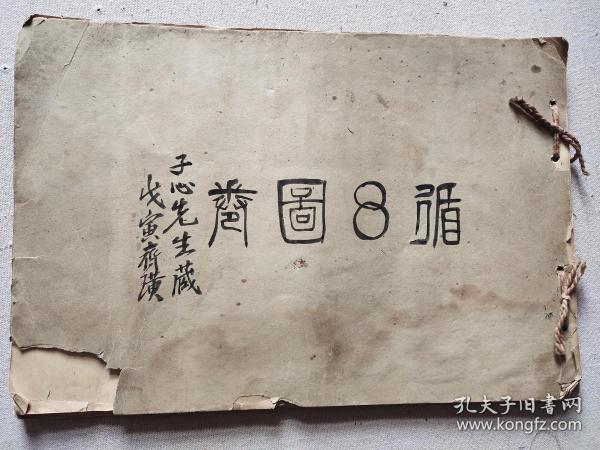 循圖卷
子心先生藏
戊寅齊璜
孔夫子旧書网
www.kongfz.com